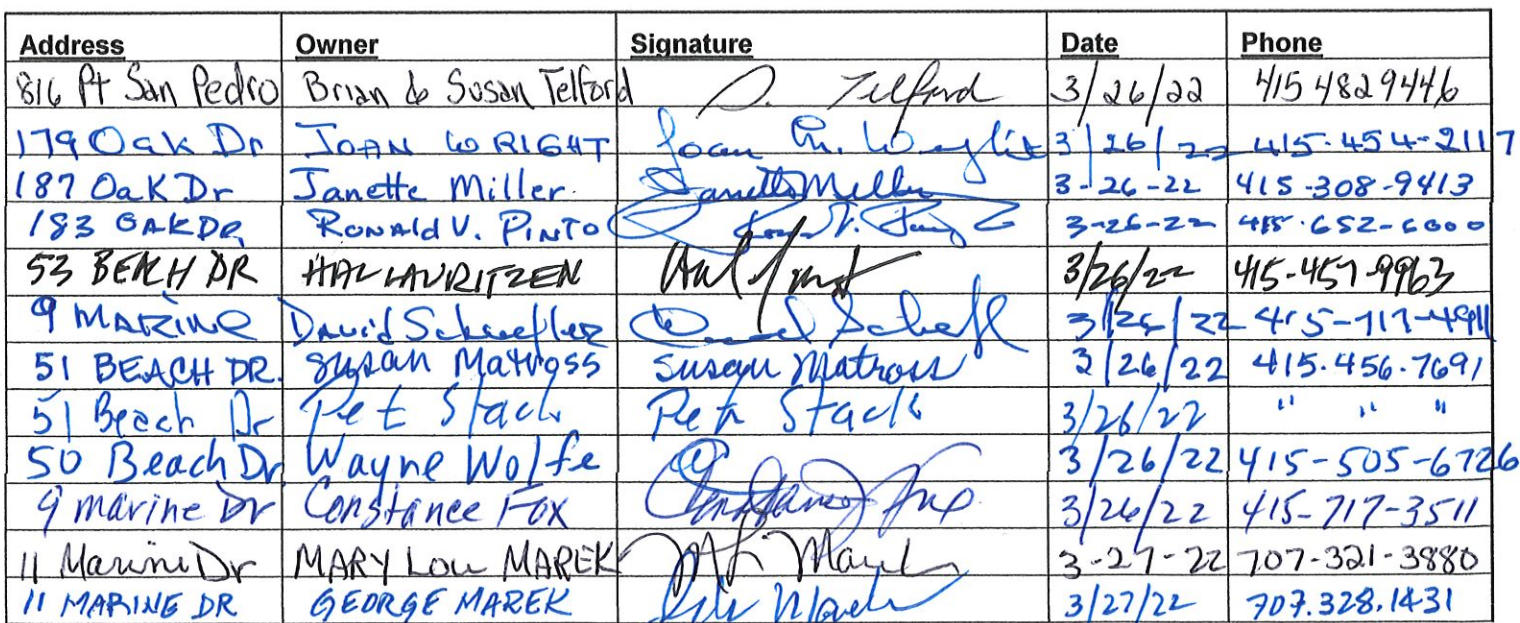 Address Owner Signature Date Phone
816 Pt San Pedro Brian & Susan Telford S. Telford 3/26/22 415 4829446
179 Oak Dr JOAN WRIGHT Joan M. Wright 3/26/22 415-454-2117
187 Oak Dr Janette Miller Janette Miller 3-26-22 415-308-9413
183 OAK DR RONALD V. PINTO 3-26-22 415.652-6000
53 BEACH DR HAL LAURITZEN 3/26/22 415-457-9963
9 MARINE David Schaefler 3/26/22 415-717-4911
51 BEACH DR. Susan Matross Susan Matross 3/26/22 415.456.7691
51 Beach Dr Pet Stack Pet Stack 3/26/22 " " "
50 Beach Dr Wayne Wolfe 3/26/22 415-505-6726
9 marine Dr Constance Fox Constance Fox 3/26/22 415-717-3511
11 Marine Dr MARY LOU MAREK ML Marek 3-27-22 707-321-3880
11 MARINE DR GEORGE MAREK 3/27/22 707.328.1431